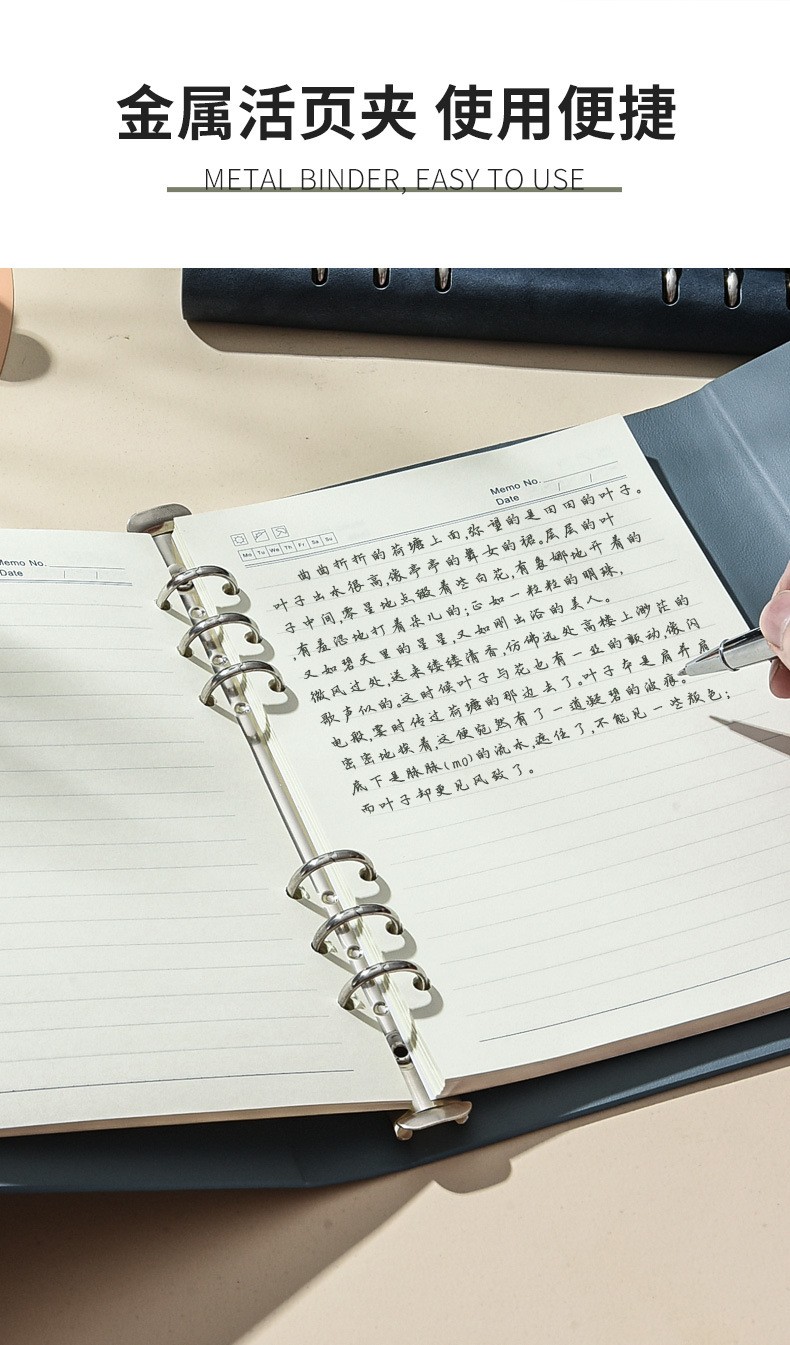 金属活页夹 使用便捷
METAL BINDER, EASY TO USE
Memo No.
Date
Memo No.
Date
Mo Tu We Th Fr Sa Su
曲曲折折的荷塘上面,弥望的是田田的叶子。
叶子出水很高,像亭亭的舞女的裙。层层的叶
子中间,零星地点缀着些白花,有袅娜地开着的
,有羞涩地打着朵儿的;正如一粒粒的明珠,
又如碧天里的星星,又如刚出浴的美人。
微风过处,送来缕缕清香,仿佛远处高楼上渺茫的
歌声似的。这时候叶子与花也有一丝的颤动,像闪
电般,霎时传过荷塘的那边去了。叶子本是肩并肩
密密地挨着,这便宛然有了一道凝碧的波痕。
底下是脉脉(mo)的流水,遮住了,不能见一些颜色;
而叶子却更见风致了。